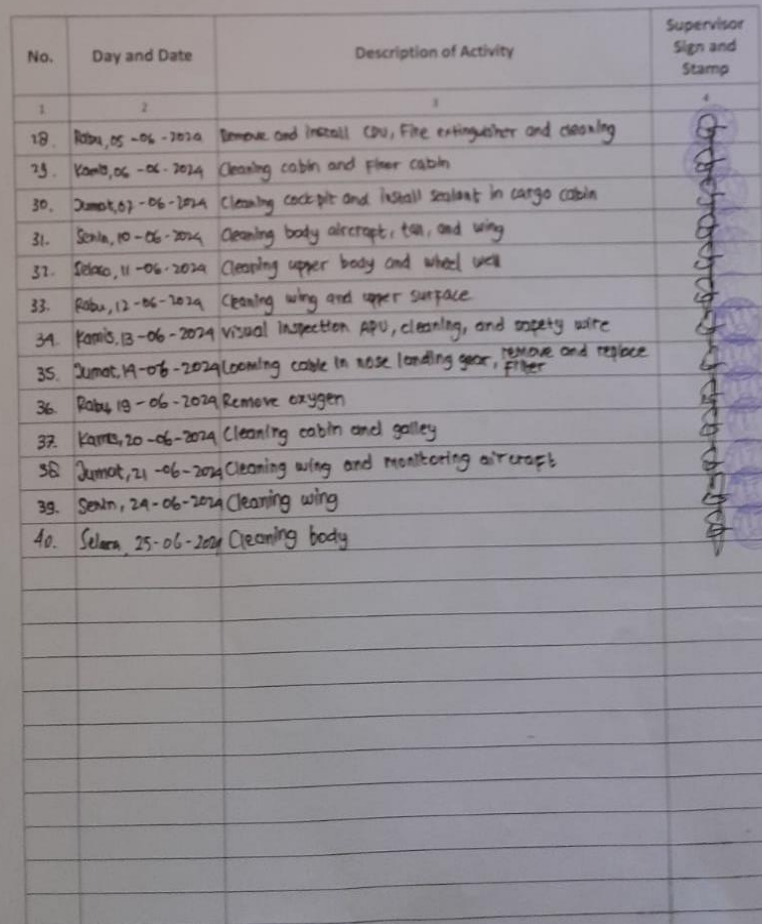 No. Day and Date Description of Activity Supervisor Sign and Stamp
1 2 3 4
28. Rabu, 05-06-2024 Remove and install CDU, Fire extinguisher and cleaning
29. Kamis, 06-06-2024 Cleaning cabin and floor cabin
30. Jumat, 07-06-2024 Cleaning cockpit and install sealant in cargo cabin
31. Senin, 10-06-2024 Cleaning body aircraft, tail, and wing
32. Selasa, 11-06-2024 Cleaning upper body and wheel well
33. Rabu, 12-06-2024 Cleaning wing and upper surface
34. Kamis, 13-06-2024 Visual inspection APU, cleaning, and safety wire
35. Jumat, 14-06-2024 Looming cable in nose landing gear, remove and replace filter
36. Rabu, 19-06-2024 Remove oxygen
37. Kamis, 20-06-2024 Cleaning cabin and galley
38 Jumat, 21-06-2024 Cleaning wing and monitoring aircraft
39. Senin, 24-06-2024 Cleaning wing
40. Selasa, 25-06-2024 Cleaning body